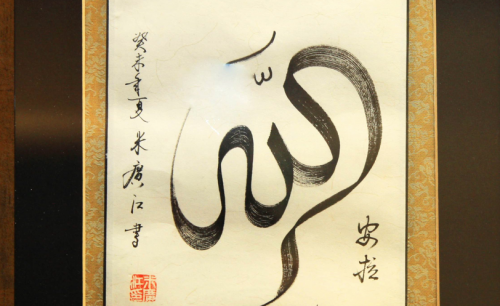 الله
安拉
癸未年夏 米廣江書